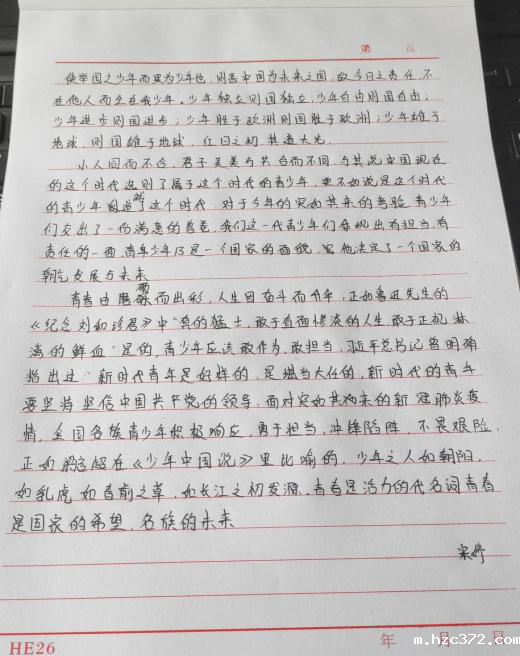 第 页
使举国之少年而果为少年也，则吾中国为未来之国，故今日之责任，不
在他人而全在我少年。少年独立则国独立，少年自由则国自由；
少年进步则国进步；少年胜于欧洲则国胜于欧洲；少年雄于
地球，则国雄于地球，红日之初其道大光。
小人同而不合，君子美美与共合而不同，与其说中国现在
的这个时代选则了属于这个时代的青少年，更不如说是这个时代
的青少年创造就这个时代，对于今年的突如其来的考验，青少年
们交出了一份满意的答卷，我们这一代青少年们体现出有担当，有
责任的一面，青年少乃是一个国家的面貌，它他决定了一个国家的
朝气发展与未来
青春由磨砺而出彩，人生因奋斗而升华，正如鲁迅先生的
《纪念刘和珍君》中"真的猛士，敢于直面惨淡的人生，敢于正视淋
漓的鲜血"是的，青少年应该敢作为，敢担当，习近平总书记曾明确
指出过"新时代青年是好样的，是堪当大任的，新时代的青年
要坚持坚信中国共产党的领导，面对突如其来的新冠肺炎疫
情，全国各族青少年积极响应，勇于担当，冲锋陷阵，不畏艰险，
正如梁启超在《少年中国说》里比喻的，少年之人如朝阳，
如乳虎 如春前之草，如长江之初发源，青春是活力的代名词青春
是国家的希望，名族的未来
宋婷
HE26 年 月 日
m.hzc372.com